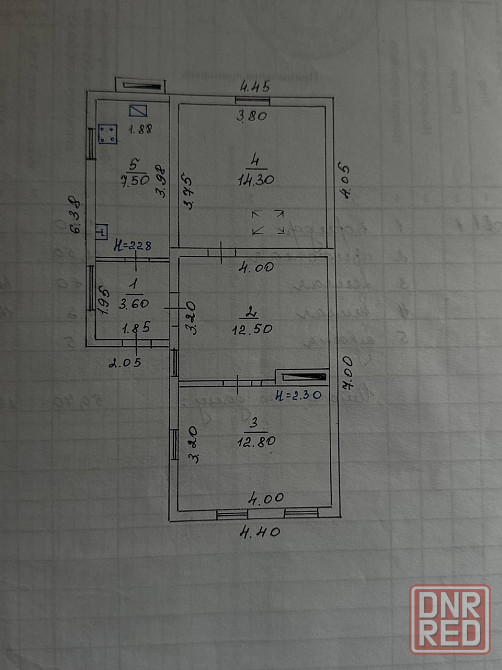 4.45
3.80
1.88
5
7.50
3.98
3.75
4
14.30
4.05
6.38
H=228
4.00
1
3.60
1.95
1.85
2.05
3.20
2
12.50
7.00
H=2.30
3
12.80
3.20
4.00
4.40
DNR
RED